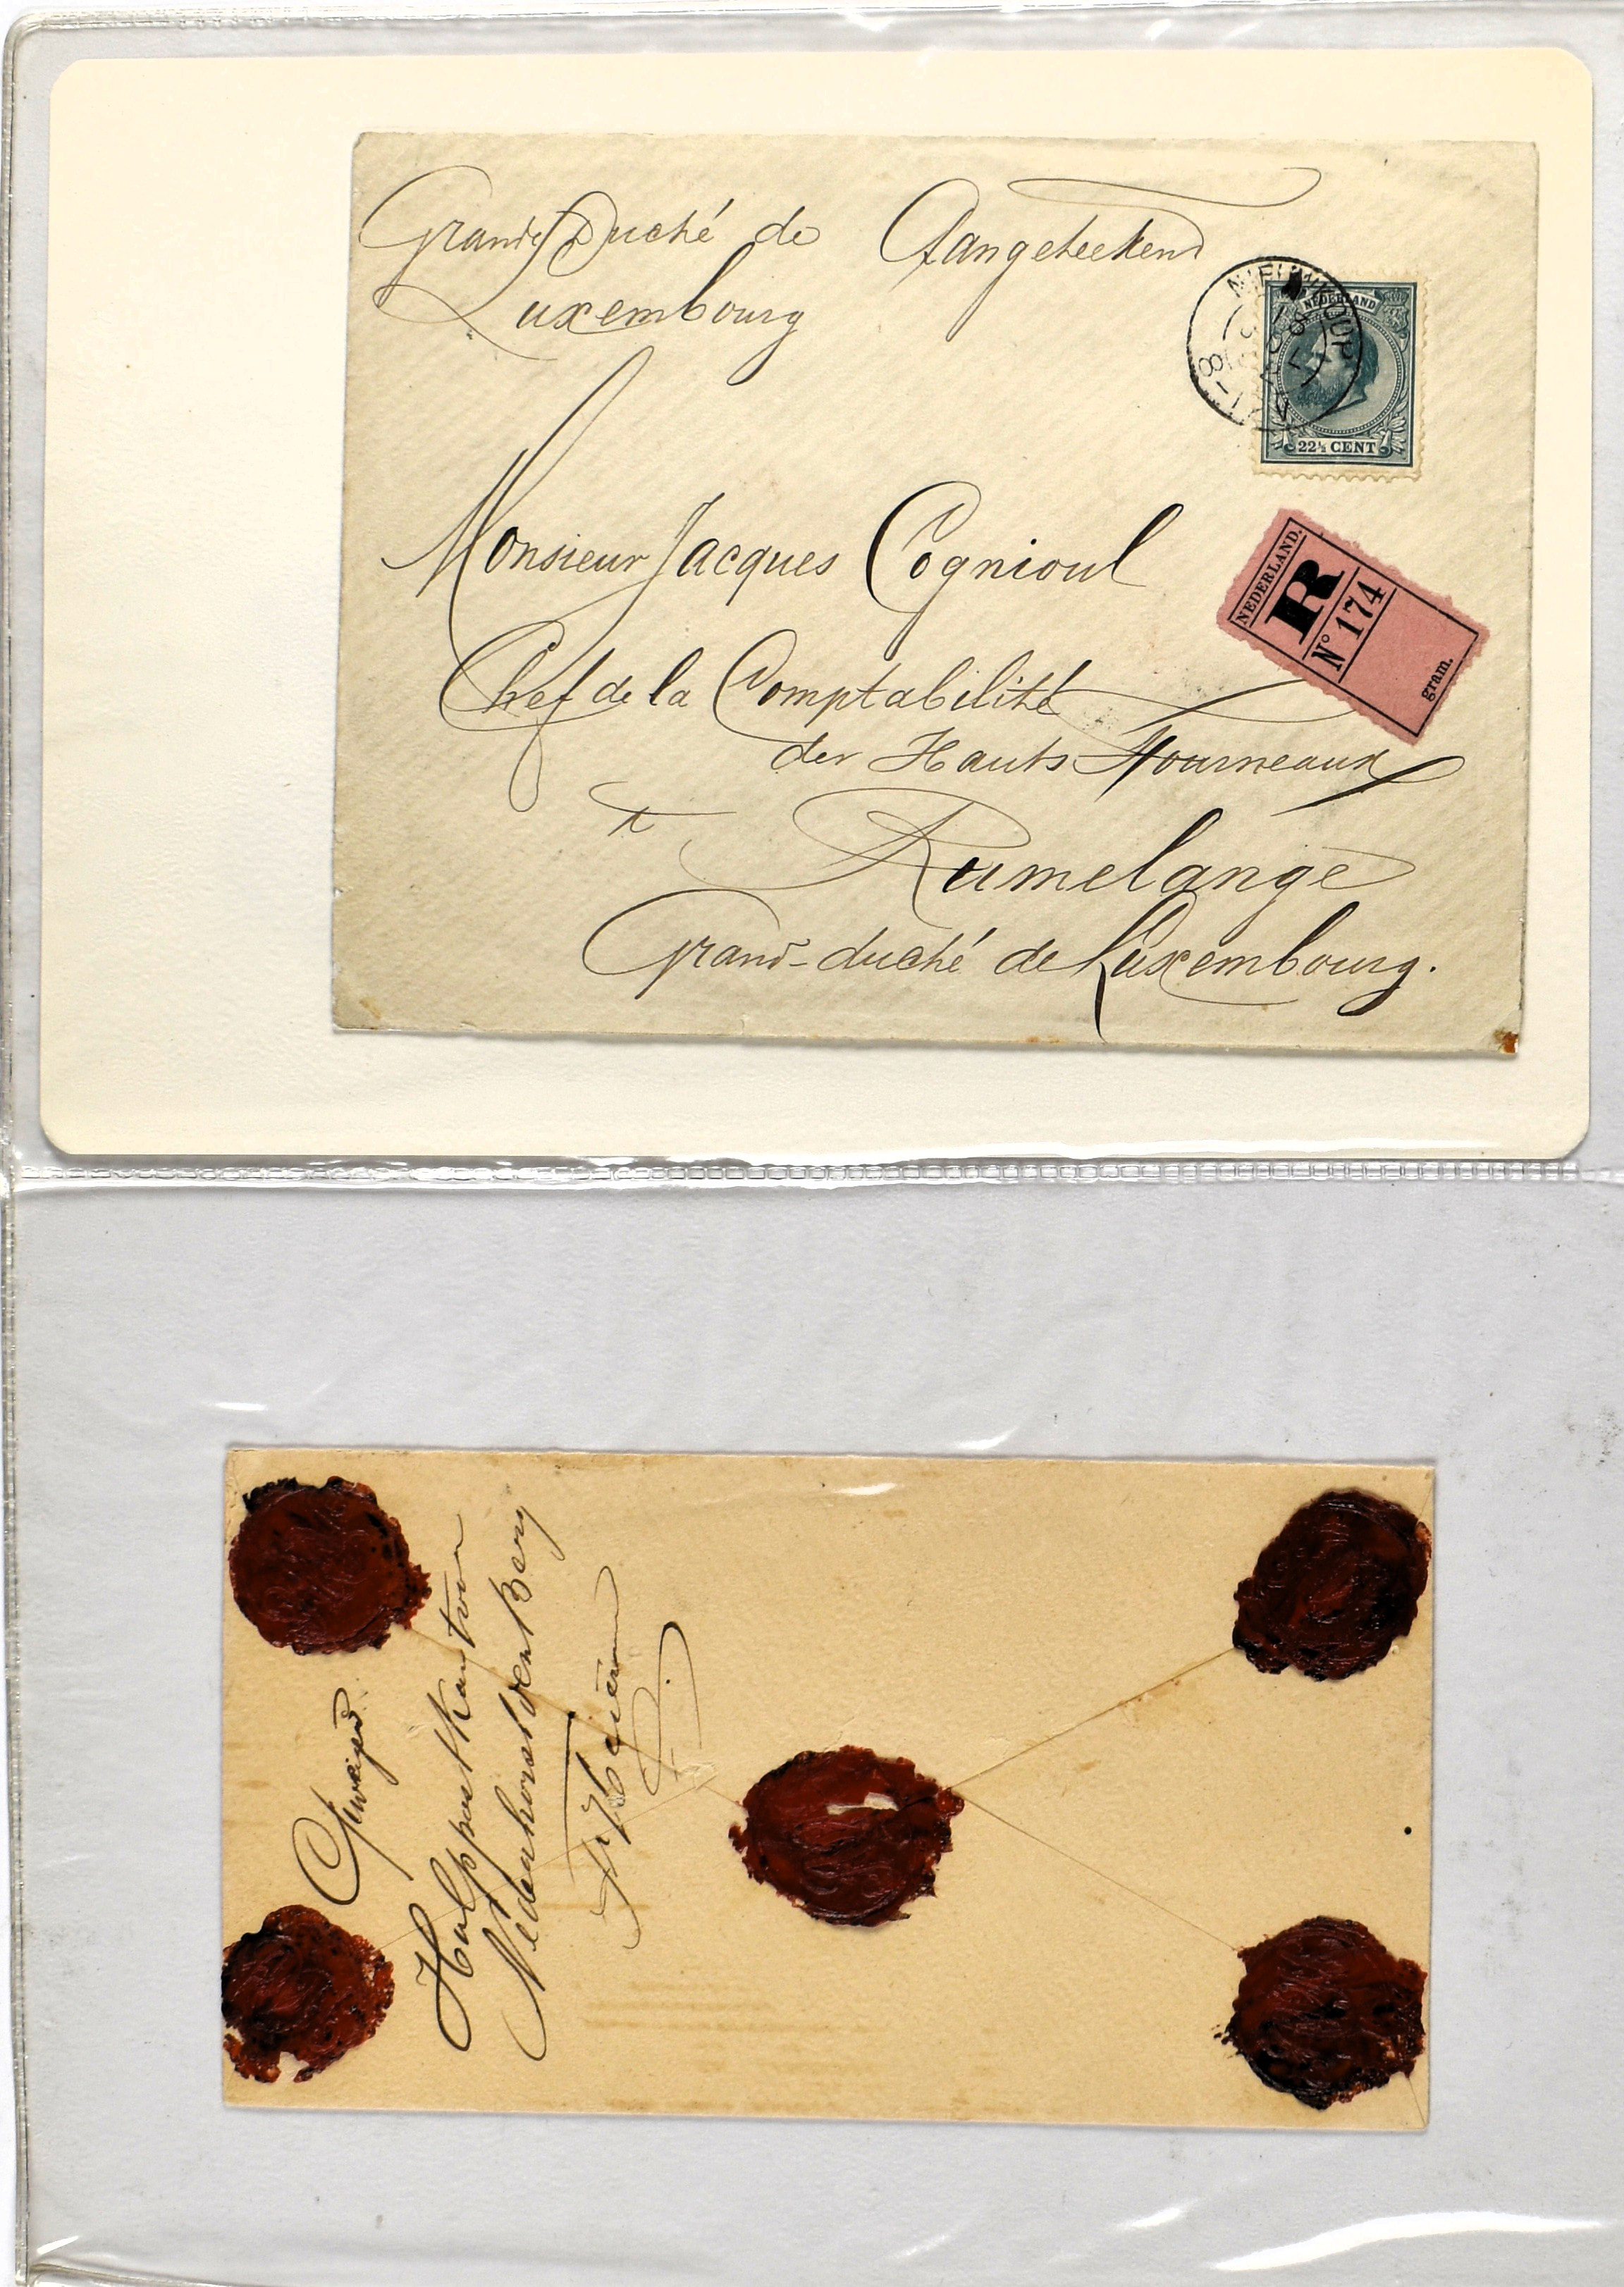 Grand Duché de Aangeteekend
Luxembourg
NIEUWKOOP
8-12V
NEDERLAND
22½ CENT
Monsieur Jacques Cognioul
NEDERLAND.
R
Nº 174
gram.
Chef de la Comptabilité
des Hauts Fourneaux
à
Rumelange
Grand-duché de Luxembourg.
Hulppostkantoor
Nederhorst den Berg